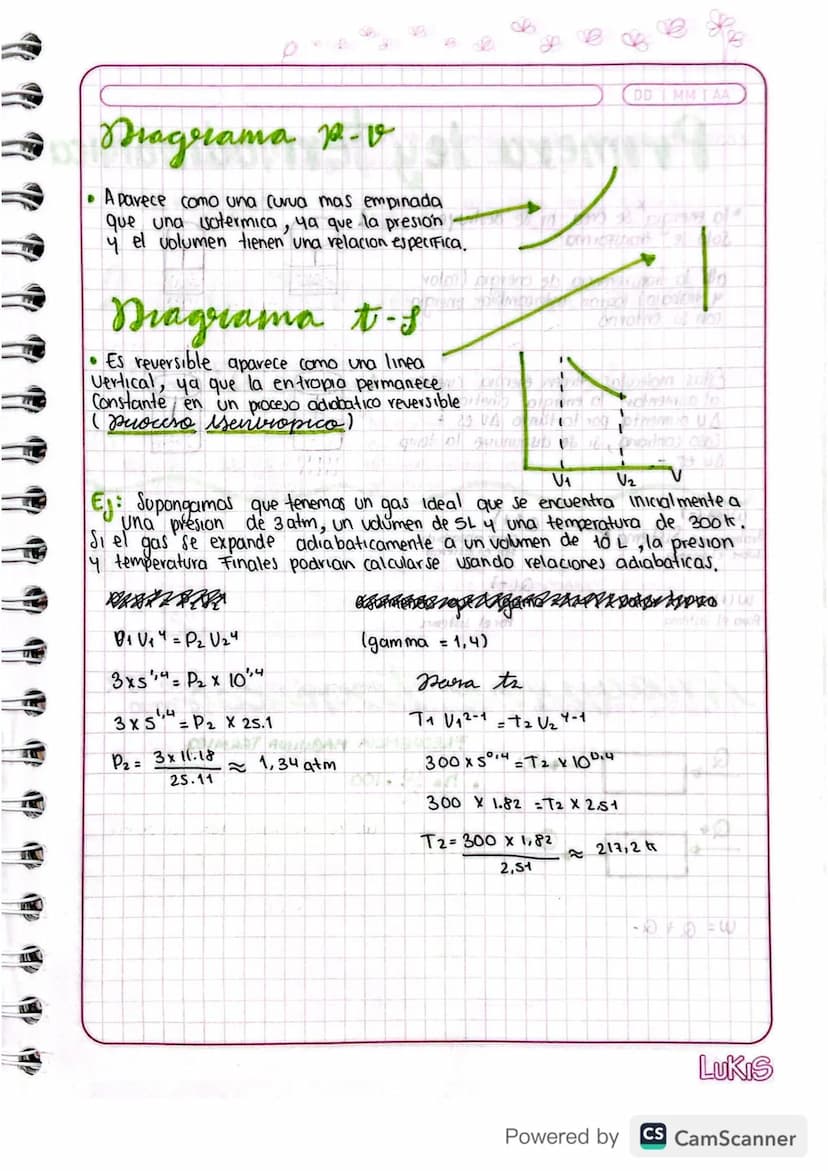 DD | MM | AA
Diagrama p-v
• Aparece como una curva mas empinada
que una isotermica, ya que la presion
y el volumen tienen una relacion especifica.
Diagrama t-s
• Es reversible aparece como una linea
vertical, ya que la entropia permanece
constante en un proceso adiabatico reversible
(proceso isentropico)
V1 V2 V
Ej: Supongamos que tenemos un gas ideal que se encuentra inicialmente a
una presion de 3 atm, un volumen de 5L y una temperatura de 300k.
Si el gas se expande adiabaticamente a un volumen de 10 L, la presion
y temperatura finales podrian calcularse usando relaciones adiabaticas.
P1 V1^4 = P2 V2^4 (gamma = 1,4)
3x5^1,4 = P2 x 10^1,4 para t2
3 x 5^1,4 = P2 x 25.1 T1 V1^2-1 = T2 V2^4-1
P2 = 3 x 11.18 / 25.11 ≈ 1,34 atm 300 x 5^0,4 = T2 x 10^0,4
300 x 1.82 = T2 x 2,51
T2 = 300 x 1,82 / 2,51 ≈ 217,2 k
LUKIS
Powered by CS CamScanner